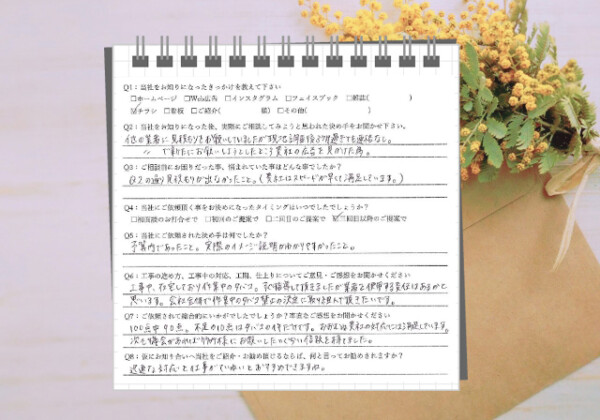 Q1：当社をお知りになったきっかけを教えて下さい
□ホームページ □Web広告 □インスタグラム □フェイスブック □雑誌( )
☑チラシ □看板 □ご紹介( 様) □その他( )
Q2：当社をお知りになった後、実際にご相談してみようと思われた決め手をお聞かせ下さい。
他の業者に見積もりをお願いしていましたが現地調査後2週過ぎても連絡なし。
で新たにお願いしようとしたところ貴社の広告を見かけた為。
Q3：ご相談当にお困りだった事、悩まれていた事はどんな事でしたか？
Q2の通り見積もりが出なかったこと。(貴社はスピードが早くて満足しています。)
Q4：当社にご依頼頂く事をお決めになったタイミングはいつでしたでしょうか？
□初面談のお打合せで □初回のご提案で □二回目のご提案で ☑三回目以降のご提案で
Q5：当社にご依頼された決め手は何でしたか？
予算内であったこと。実際のイメージ説明がわかりやすかったこと。
Q6：工事の進め方、工事中の対応、工期、仕上りについてご意見・ご感想をお聞かせください
工事中、在宅しており作業中のタバコ。
思います。会社全体で作業中のタバコ禁止の決定に取り組んで頂きたいです。
Q7：ご依頼されて総合的にいかがでしたでしょうか？率直なご感想をお聞かせください
100点中90点。不足の10点はタバコの件だけです。おおむね貴社の対応には満足しています。
次も機会があれば
Q8：仮にお知り合いへ当社をご紹介・お勧め頂けるならば、何と言ってお勧めされますか？
迅速な対応と仕事がていねいとおすすめできますね。